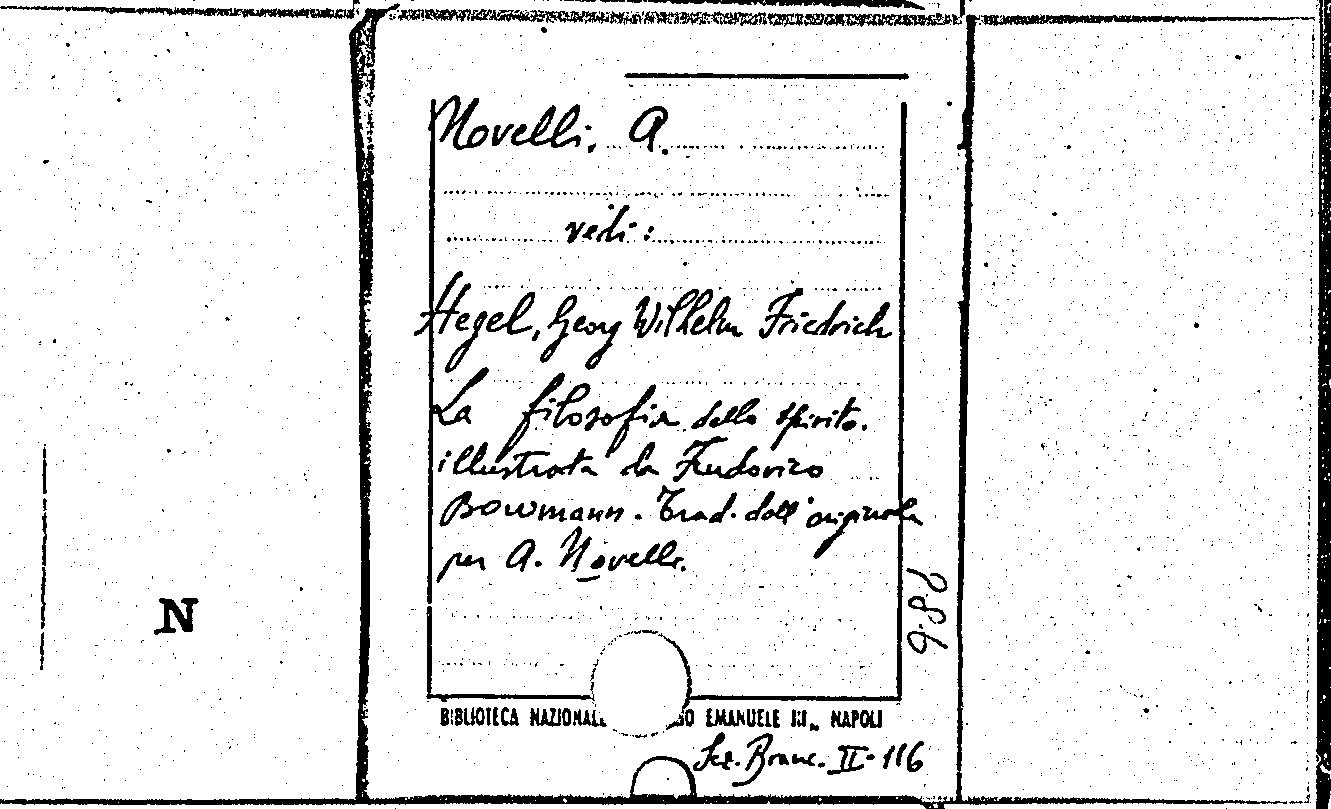 Novelli, A.
vedi:
Hegel, Georg Wilhelm Friedrich
La filosofia dello spirito.
illustrata da Ludovico
Bowmann. Trad. dall'originale
per A. Novelli.
986
N
BIBLIOTECA NAZIONALE EMANUELE III„ NAPOLI
Sez. Branc. II-116